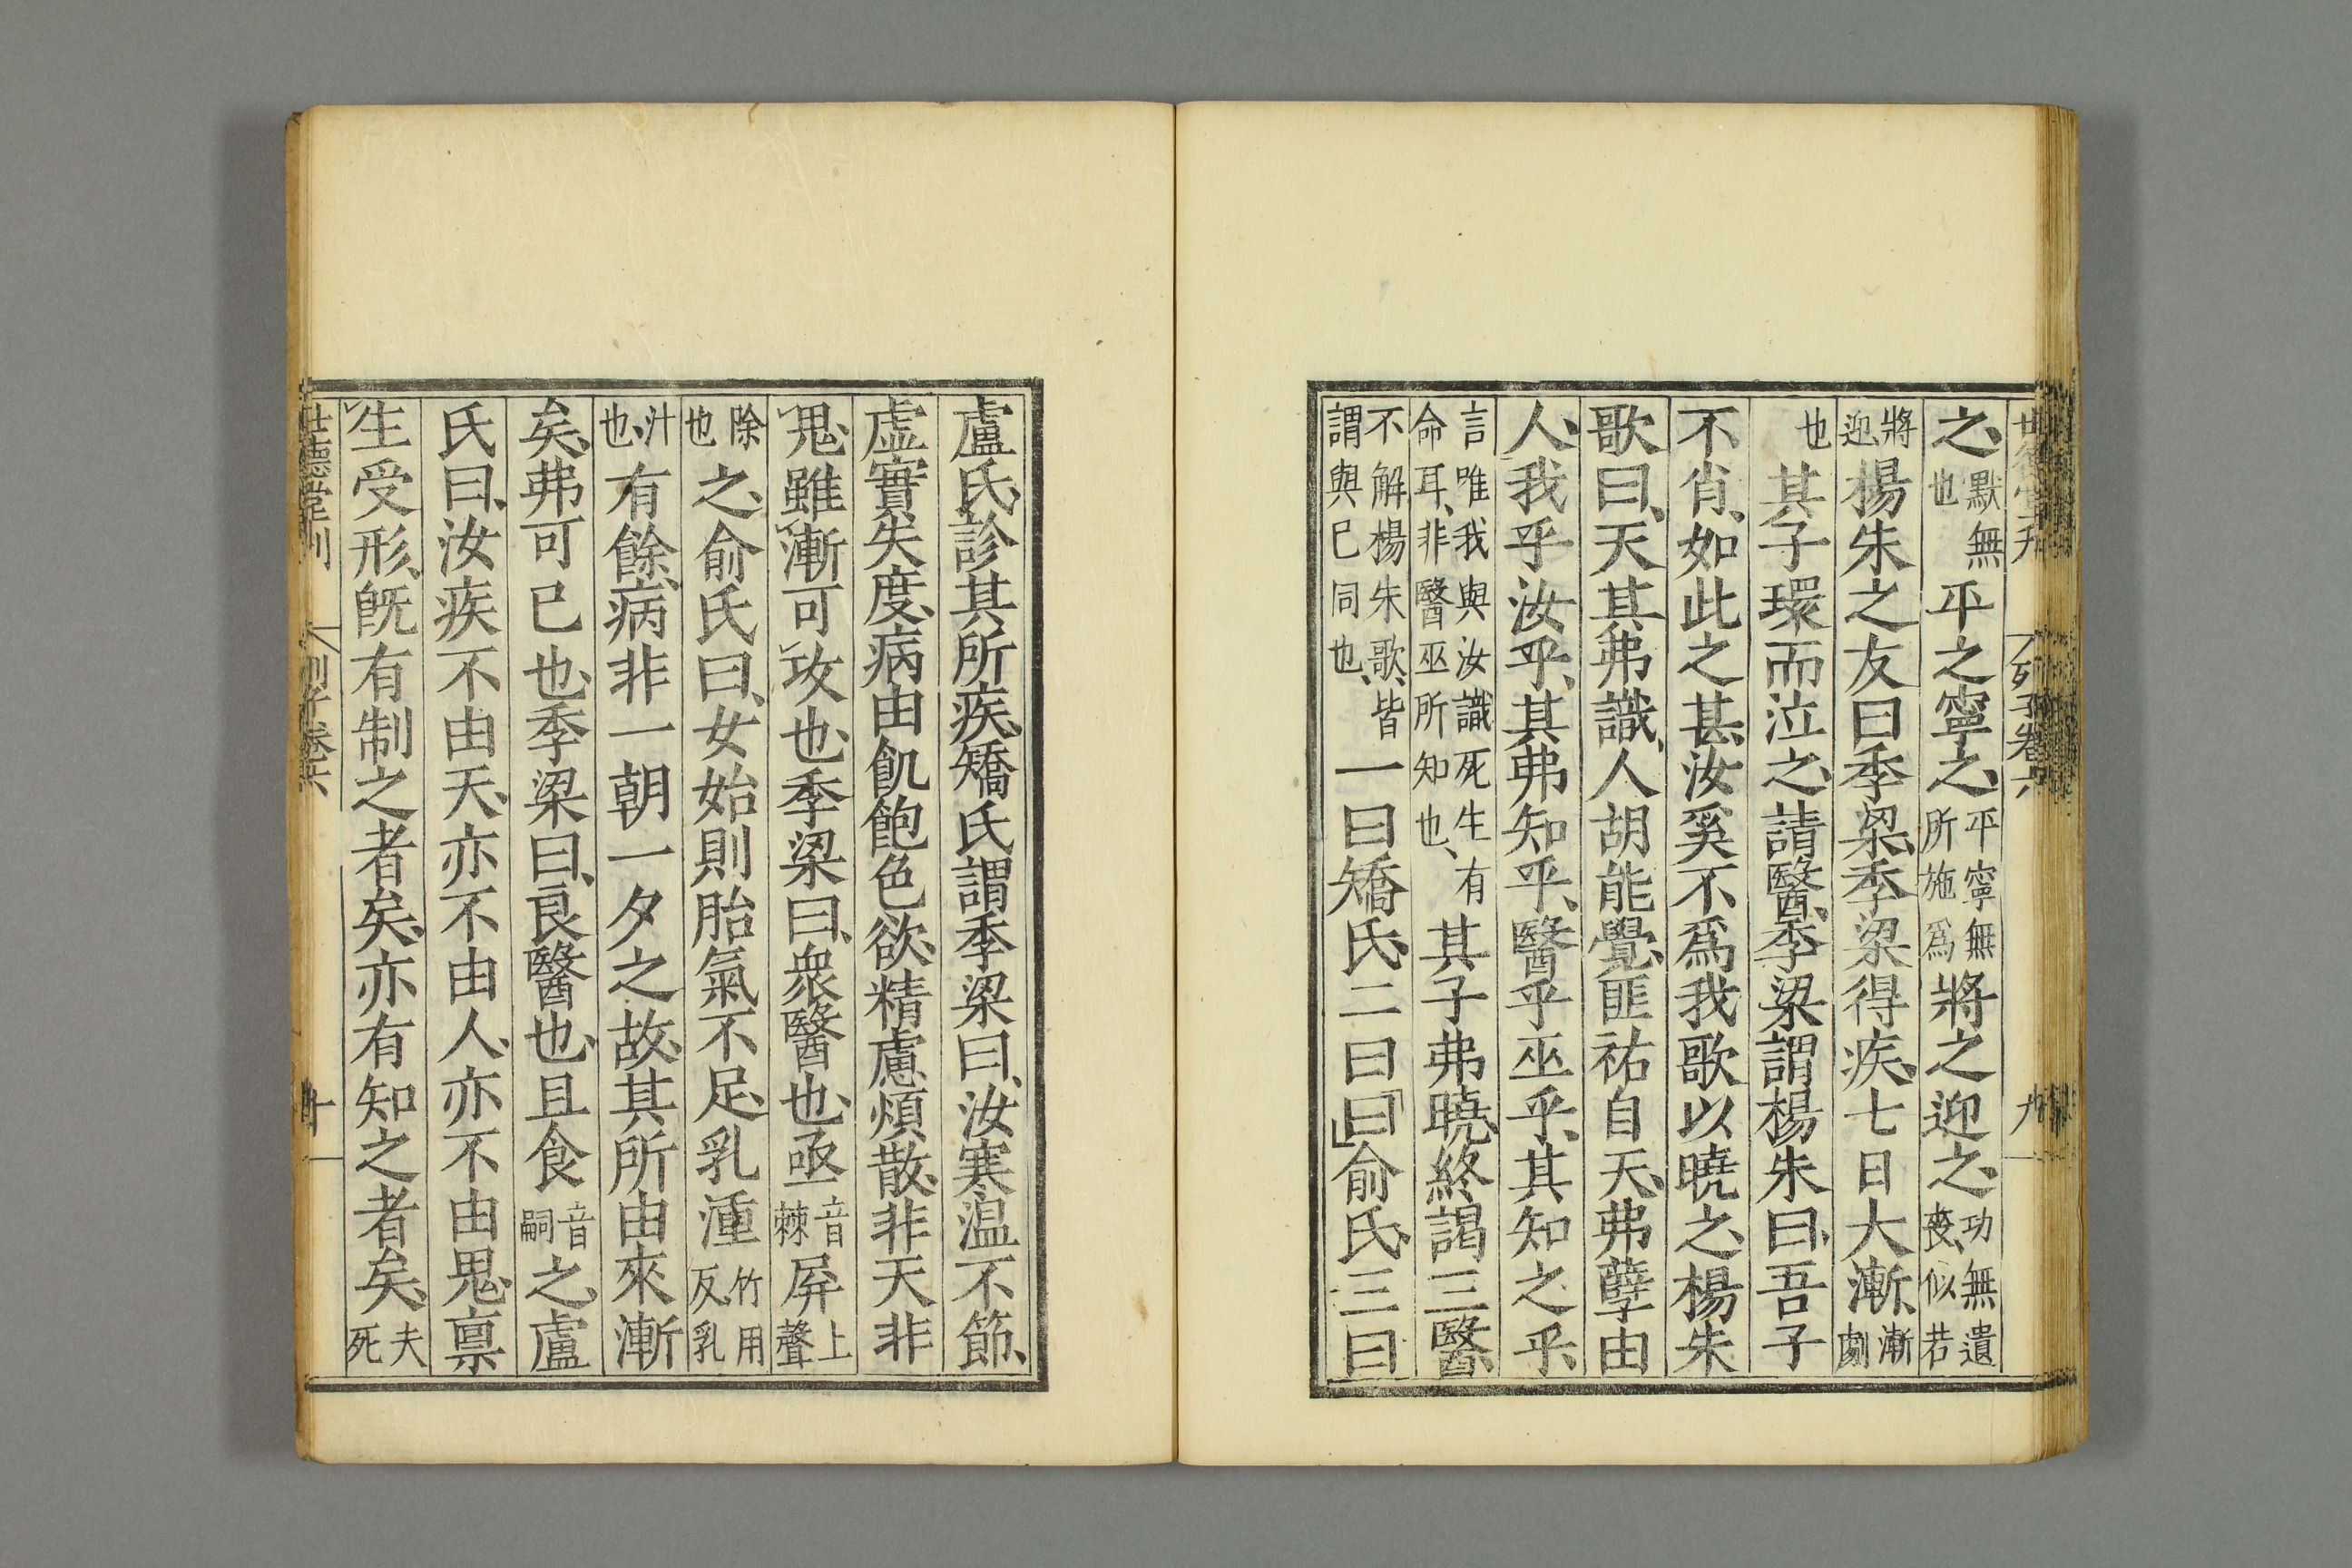 世德堂刊 列子卷六 九
之、默無也平之寧之、平寧無所施爲將之迎之、功無遺喪、似若
將迎楊朱之友曰季梁、季梁得疾、七日大漸、漸劇
也其子環而泣之、請醫、季梁謂楊朱曰、吾子
不肖、如此之甚、汝奚不爲我歌以曉之、楊朱
歌曰、天其弗識、人胡能覺、匪祐自天、弗孽由
人、我乎汝乎、其弗知乎、醫乎巫乎、其知之乎、
言唯我與汝識死生有命耳、非醫巫所知也、其子弗曉、終謁三醫、
不解楊朱歌、皆謂與已同也、一曰矯氏、二曰「曰」俞氏、三曰
盧氏、診其所疾、矯氏謂季梁曰、汝寒温不節、
虛實失度、病由飢飽色欲、精慮煩散、非天非
鬼、雖漸可攻也、季梁曰、衆醫也、亟音棘屏上聲
除也之、俞氏曰、女始則胎氣不足、乳湩竹用反、乳
汁也、有餘、病非一朝一夕之故、其所由來漸
矣、弗可已也、季梁曰、良醫也、且食音嗣之、盧
氏曰、汝疾不由天、亦不由人、亦不由鬼、禀
生受形、既有制之者矣、亦有知之者矣、夫死
世德堂刊 列子卷六 十